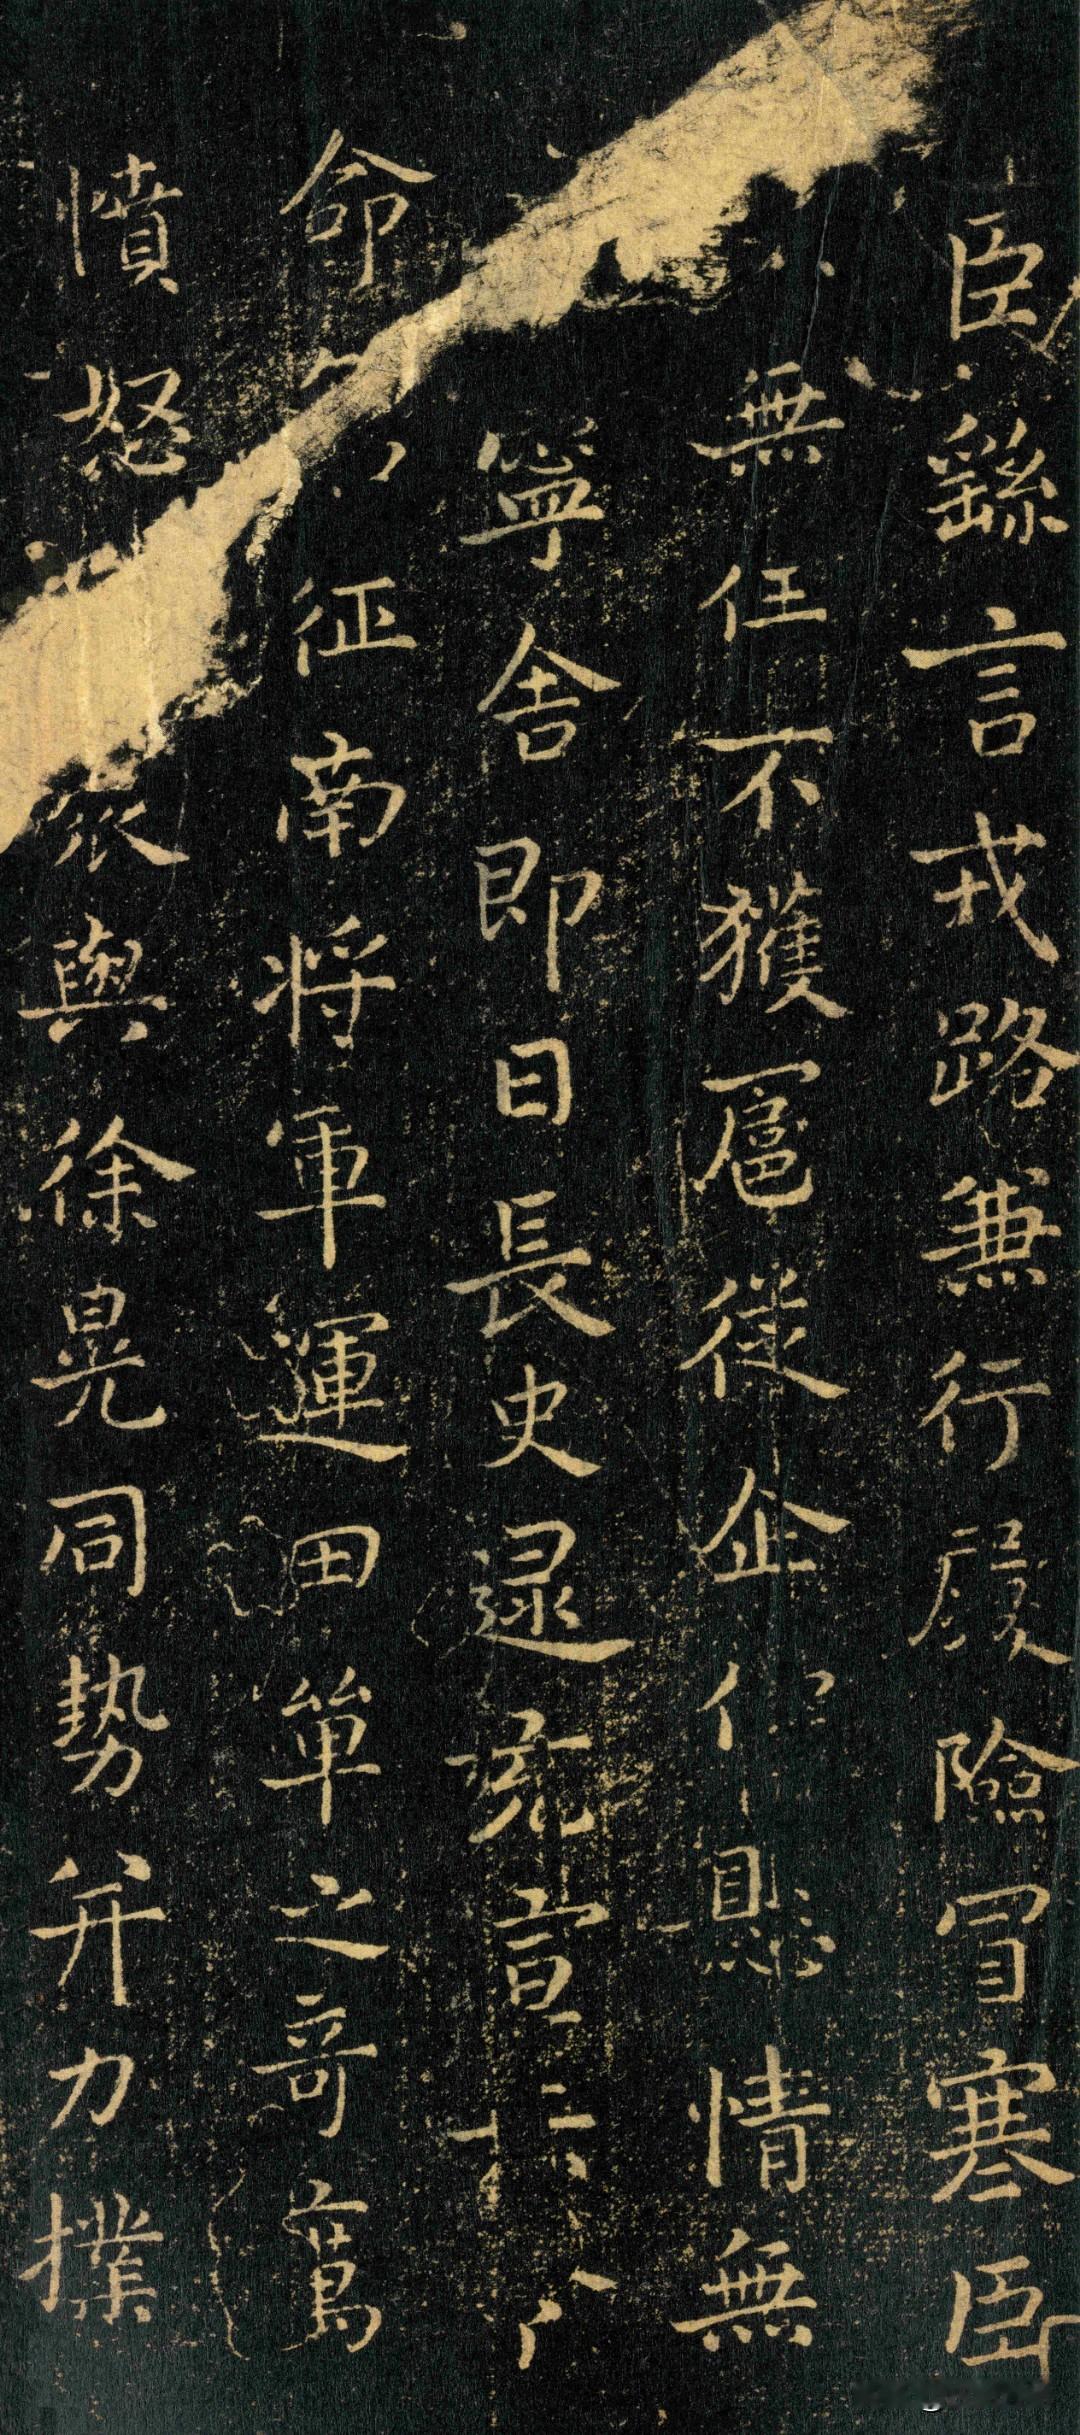 臣繇言戎路兼行履險冒寒臣
無任不獲扈從企佇懸情無
寧舍即日長史逯充宣
命征南将軍運田單之奇厲
憤怒眾與徐晃同勢并力撲